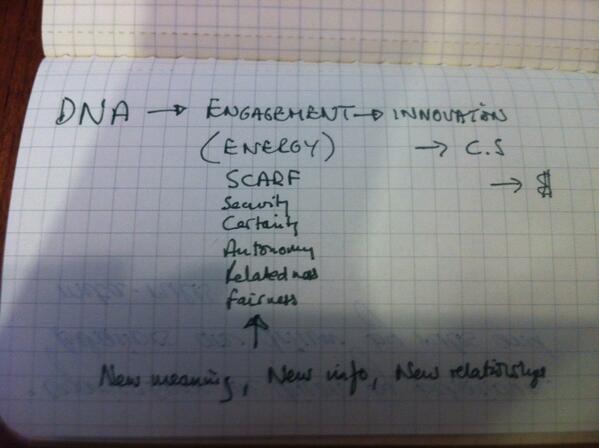 DNA → ENGAGEMENT → INNOVATION
(ENERGY) → C.S
SCARF → $
Security
Certainty
Autonomy
Relatedness
fairness
↑
New meaning, New info, New relationships